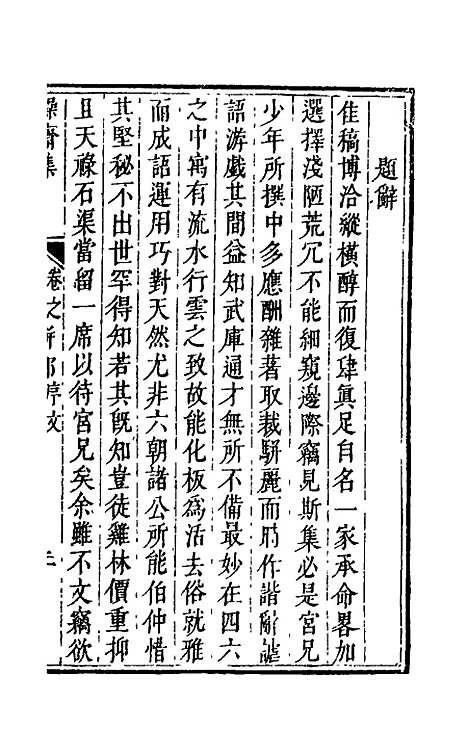 題辭
佳稿博洽縱橫醇而復肆眞足自名一家承命畧加
選擇淺陋荒冗不能細窺邊際竊見斯集必是宮兄
少年所撰中多應酬雜著取裁駢麗而時作諧辭謔
語游戲其間益知武庫通才無所不備最妙在四六
之中寓有流水行雲之致故能化板為活去俗就雅
而成語運用巧對天然尤非六朝諸公所能伯仲惜
其堅秘不出世罕得知若其旣知豈徒雞林價重抑
且天祿石渠當留一席以待宮兄矣余雖不文竊欲
齋集 卷之 序文